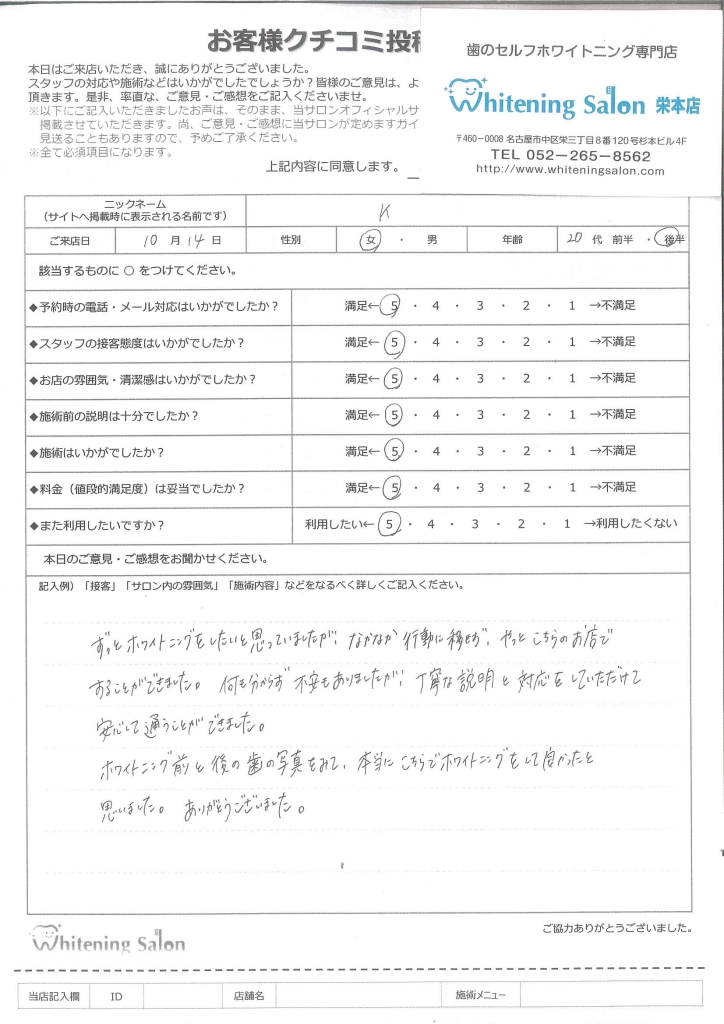 お客様クチコミ投稿
本日はご来店いただき、誠にありがとうございました。
スタッフの対応や施術などはいかがでしたでしょうか？皆様のご意見は、よ
頂きます。是非、率直な、ご意見・ご感想をご記入くださいませ。
※以下にご記入いただきましたお声は、そのまま、当サロンオフィシャルサ
掲載させていただきます。尚、ご意見・ご感想に当サロンが定めますガイ
見送ることもありますので、予めご了承ください。
※全て必須項目になります。
上記内容に同意します。
歯のセルフホワイトニング専門店
Whitening Salon 栄本店
〒460-0008 名古屋市中区栄三丁目8番120号杉本ビル4F
TEL 052-265-8562
http://www.whiteningsalon.com
ニックネーム
（サイトへ掲載時に表示される名前です） K
ご来店日 10 月 14 日 性別 女 ・ 男 年齢 20 代 前半 ・ 後半
該当するものに ○ をつけてください。
◆予約時の電話・メール対応はいかがでしたか？ 満足← 5 ・ 4 ・ 3 ・ 2 ・ 1 →不満足
◆スタッフの接客態度はいかがでしたか？ 満足← 5 ・ 4 ・ 3 ・ 2 ・ 1 →不満足
◆お店の雰囲気・清潔感はいかがでしたか？ 満足← 5 ・ 4 ・ 3 ・ 2 ・ 1 →不満足
◆施術前の説明は十分でしたか？ 満足← 5 ・ 4 ・ 3 ・ 2 ・ 1 →不満足
◆施術はいかがでしたか？ 満足← 5 ・ 4 ・ 3 ・ 2 ・ 1 →不満足
◆料金（値段的満足度）は妥当でしたか？ 満足← 5 ・ 4 ・ 3 ・ 2 ・ 1 →不満足
◆また利用したいですか？ 利用したい← 5 ・ 4 ・ 3 ・ 2 ・ 1 →利用したくない
本日のご意見・ご感想をお聞かせください。
記入例）「接客」「サロン内の雰囲気」「施術内容」などをなるべく詳しくご記入ください。
ずっとホワイトニングをしたいと思っていましたが、なかなか行動に移せず、やっとこちらのお店で
することができました。何も分からず不安もありましたが、丁寧な説明と対応をしていただけて
安心して通うことができました。
ホワイトニング前と後の歯の写真をみて、本当にこちらでホワイトニングをして良かったと
思いました。ありがとうございました。
ご協力ありがとうございました。
Whitening Salon
当店記入欄 ID 店舗名 施術メニュー